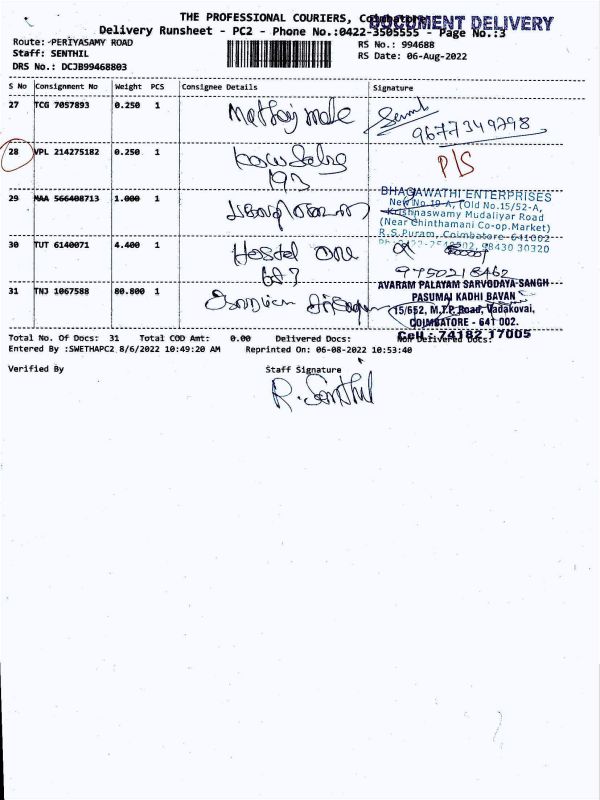 THE PROFESSIONAL COURIERS, Coimbatore
DOCUMENT DELIVERY
Delivery Runsheet - PC2 - Phone No.:0422-3505555 - Page No.:3
Route: PERIYASAMY ROAD
RS No.: 994688
Staff: SENTHIL
RS Date: 06-Aug-2022
DRS No.: DCJB99468803
S No Consignment No Weight PCS Consignee Details Signature
27 TCG 7057893 0.250 1
9677349798
28 VPL 214275182 0.250 1 P/S
193
29 MAA 566408713 1.000 1
BHAGAWATHI ENTERPRISES
New No.19-A, (Old No.15/52-A,
Krishnaswamy Mudaliyar Road
(Near Chinthamani Co-op.Market)
R.S.Puram, Coimbatore-641002
98430 30320
30 TUT 6140071 4.400 1 Hostel
9750218462
31 TNJ 1067588 80.800 1
AVARAM PALAYAM SARVODAYA SANGH
PASUMAI KADHI BAVAN
15/652, M.T.P. Road, Vadakovai,
COIMBATORE - 641 002.
Cell : 74182 17005
Total No. Of Docs: 31 Total COD Amt: 0.00 Delivered Docs: Non Delivered Docs:
Entered By :SWETHAPC2 8/6/2022 10:49:20 AM Reprinted On: 06-08-2022 10:53:40
Verified By Staff Signature
R. Senthil